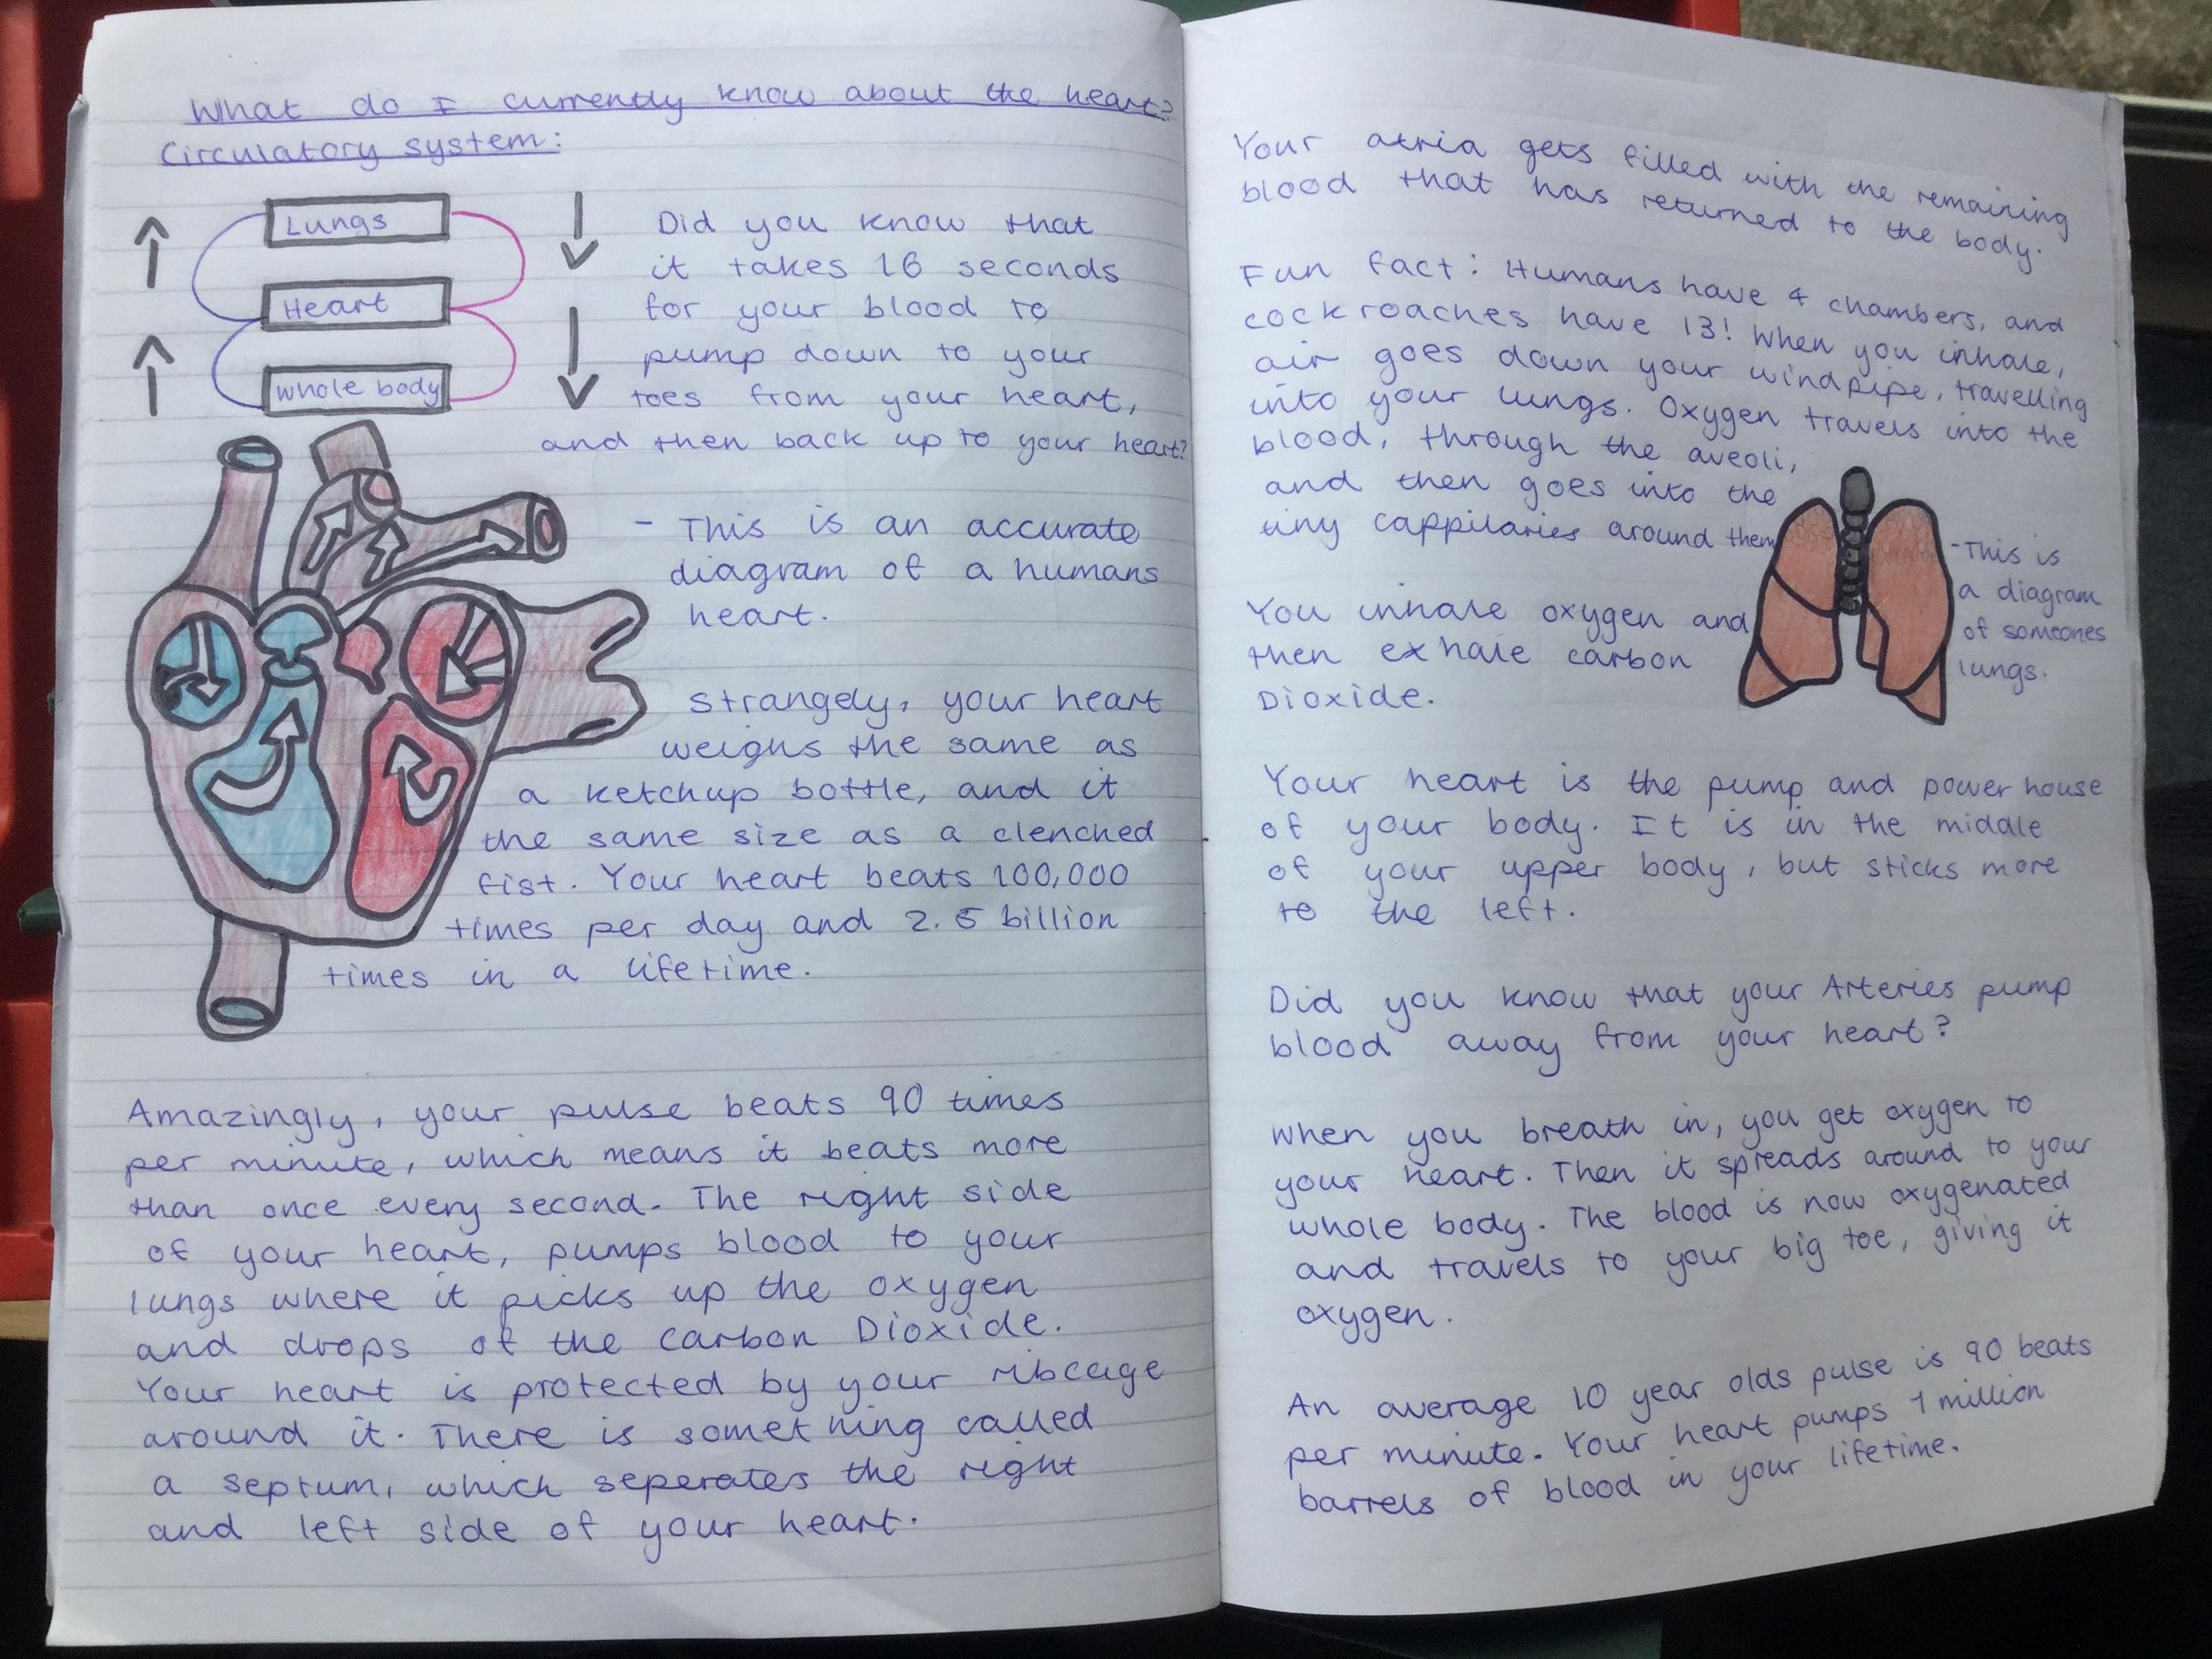 What do I currently know about the heart?
Circulatory system:
Lungs
Heart
whole body
Did you know that
it takes 16 seconds
for your blood to
pump down to your
toes from your heart,
and then back up to your heart?
- This is an accurate
diagram of a humans
heart.
Strangely, your heart
weighs the same as
a ketchup bottle, and it
the same size as a clenched
fist. Your heart beats 100,000
times per day and 2.5 billion
times in a lifetime.
Amazingly, your pulse beats 90 times
per minute, which means it beats more
than once every second. The right side
of your heart, pumps blood to your
lungs where it picks up the oxygen
and drops of the carbon Dioxide.
Your heart is protected by your ribcage
around it. There is something called
a septum, which seperates the right
and left side of your heart.
Your atria gets filled with the remaining
blood that has returned to the body.
Fun fact: Humans have 4 chambers, and
cockroaches have 13! When you inhale,
air goes down your windpipe, travelling
into your lungs. Oxygen travels into the
blood, through the aveoli,
and then goes into the
tiny cappilaries around them
You inhale oxygen and
then exhale carbon
Dioxide.
-This is
a diagram
of someones
lungs.
Your heart is the pump and power house
of your body. It is in the middle
of your upper body, but sticks more
to the left.
Did you know that your Arteries pump
blood away from your heart?
When you breath in, you get oxygen to
your heart. Then it spreads around to your
whole body. The blood is now oxygenated
and travels to your big toe, giving it
oxygen.
An average 10 year olds pulse is 90 beats
per minute. Your heart pumps 1 million
barrels of blood in your lifetime.